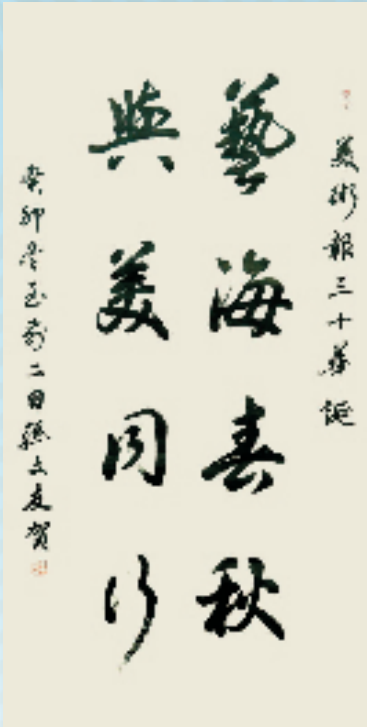 美術報三十華誕
藝海春秋
與美同行
癸卯冬至前二日孫文友賀